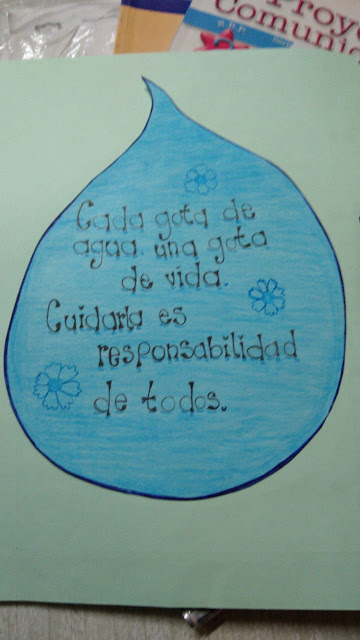 Proye
Comuni
Cada gota de
agua. una gota
de vida.
Cuidarla es
responsabilidad
de todos.